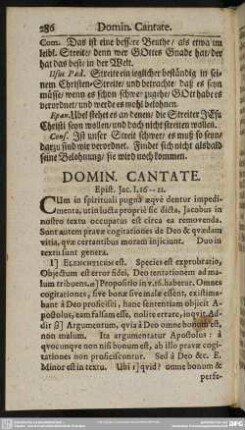 286 Domin. Cantate.
Com. Das ist eine bessere Beuthe/ als etwa im
leibl. Streite/ denn wer GOttes Gnade hat/ der
hat das beste in der Welt.
Usus Pæd. Streite ein ieglicher beständig in sei-
nem Christen-Streite/ und betrachte/ daß es seyn
müsse/ wenn es schon schwer zugehe/ GOtt habe es
verordnet/ und werde es wohl belohnen.
Epan. Ubel stehet es an denen/ die Streiter JEsu
Christi seyn wollen/ und doch nicht streiten wollen.
Cons. Ist unser Streit schwer; es muß so seyn/
darzu sind wir verordnet. Findet sich nicht alsbald
seine Belohnung/ sie wird noch kommen.
DOMIN. CANTATE.
Epist. Jac. I. 16--21.
CUm in spirituali pugnâ æqvè dentur impedi-
menta, ut in luctâ propriè sic dictâ, Jacobus in
nostro textu occupatus est circa ea removenda.
Sont autem pravæ cogitationes de Deo & qvædam
vitia, qvæ certantibus moram injiciunt. Duo in
textu sunt genera.
I] ELENCHTICUM est. Species est exprobratio,
Objectum est error fidei, Deo tentationem ad ma-
lum tribuens, Propositio in v. 16. habetur. Omnes
cogitationes, sive bonæ sive malæ essent, existima-
bant à Deo proficisci, hanc sententiam objicit A-
postolus, eam falsam esse, nolite errare, inqvit. Ad-
dit β] Argumentum, qvia à Deo omne bonum est,
non malum. Ita argumentatur Apostolus: à
qvocunqve non nisi bonum est, ab illo pravæ cogi-
tationes non proficiscuntur. Sed à Deo &c. E.
Minor est in textu. Ubi 1] qvid? omne bonum &
perfe-